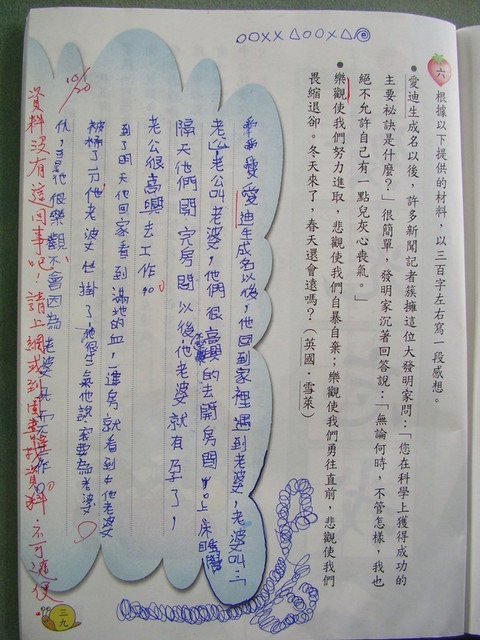 ○○××△○○×△◎
六 根據以下提供的材料，以三百字左右寫一段感想。
●愛迪生成名以後，許多新聞記者簇擁這位大發明家問：「您在科學上獲得成功的
主要祕訣是什麼？」很簡單，發明家沉著回答說：「無論何時，不管怎樣，我也
絕不允許自己有一點兒灰心喪氣。」
●樂觀使我們努力進取，悲觀使我們自暴自棄；樂觀使我們勇往直前，悲觀使我們
畏縮退卻。冬天來了，春天還會遠嗎？（英國．雪萊）
愛迪生成名以後，他回到家裡遇到老婆，老婆叫：「
老公老公叫老婆，他們很高興的去開房間 上床睡覺
隔天他們開完房間以後，他老婆就有孕了，
老公很高興去工作。
到了明天他回家看到滿地的血，一進房就看到他老婆
被桶了一刀他老婆 掛了，他很生氣他說 要為老婆
仇，於是他很樂觀不會因為老婆死而不工作。
10/20
資料沒有這回事吧，請上網或到圖書找資料，不可隨便。
三九